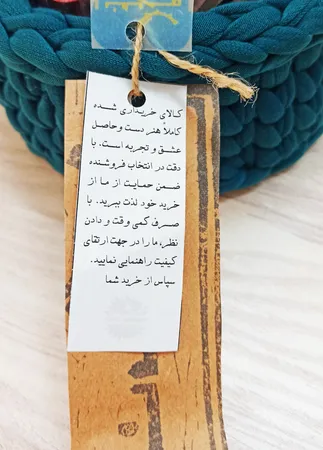 کالای خریداری شده
کاملاً هنر دست و حاصل
عشق و تجربه است. با
دقت در انتخاب فروشنده
ضمن حمایت از ما از
خرید خود لذت ببرید. با
صرف کمی وقت و دادن
نظر، ما را در جهت ارتقای
کیفیت راهنمایی نمایید.
سپاس از خرید شما